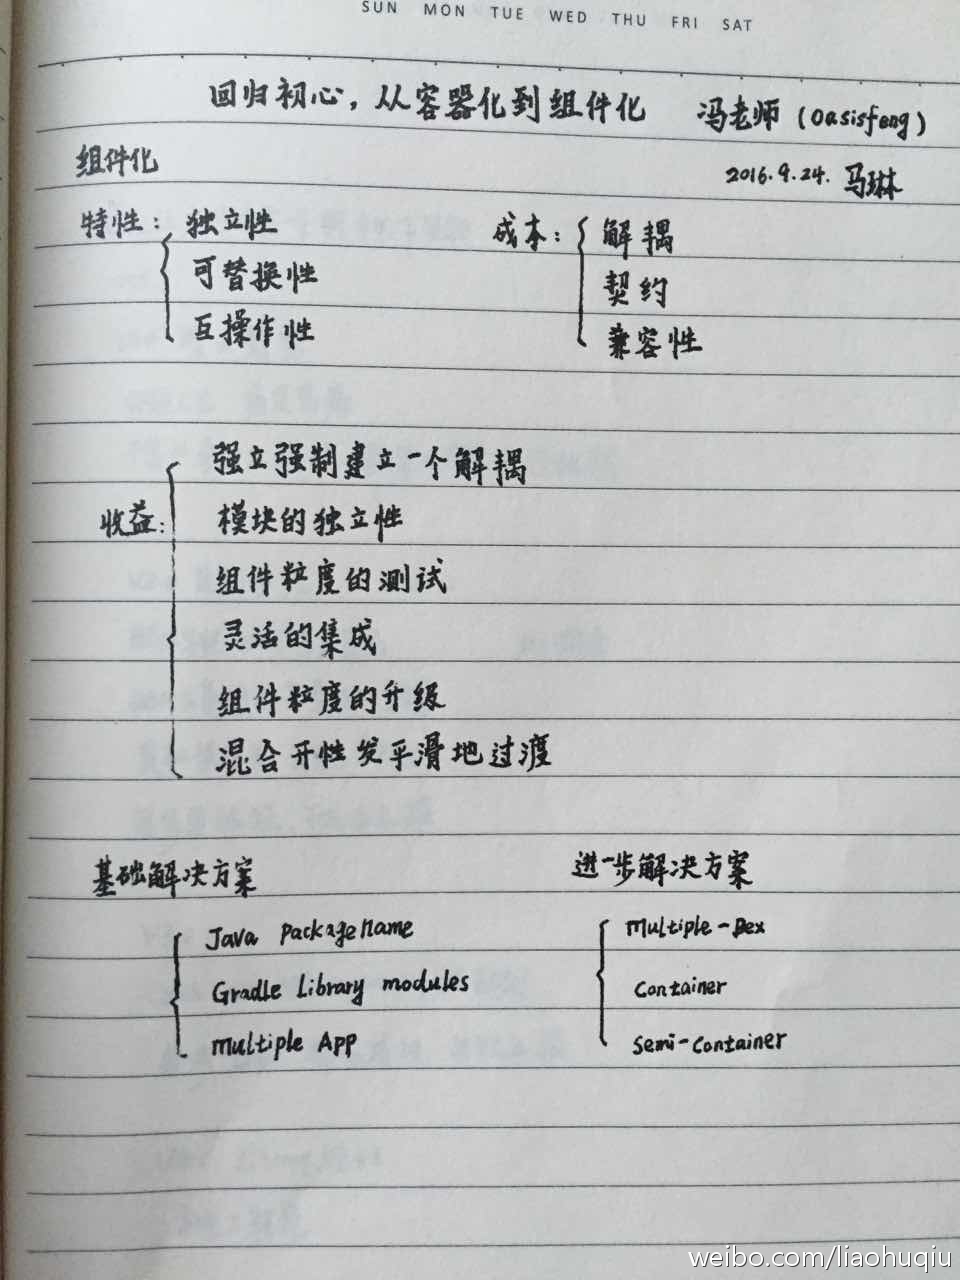 SUN MON TUE WED THU FRI SAT
回归初心，从容器化到组件化 冯老师 (Oasisfeng)
组件化
2016.9.24. 马琳
特性： 独立性
可替换性
互操作性
成本： 解耦
契约
兼容性
收益：
强立强制建立一个解耦
模块的独立性
组件粒度的测试
灵活的集成
组件粒度的升级
混合开性发平滑地过渡
基础解决方案
Java PackageName
Gradle Library modules
multiple App
进一步解决方案
Multiple-Dex
Container
Semi-Container
weibo.com/liaohuqiu